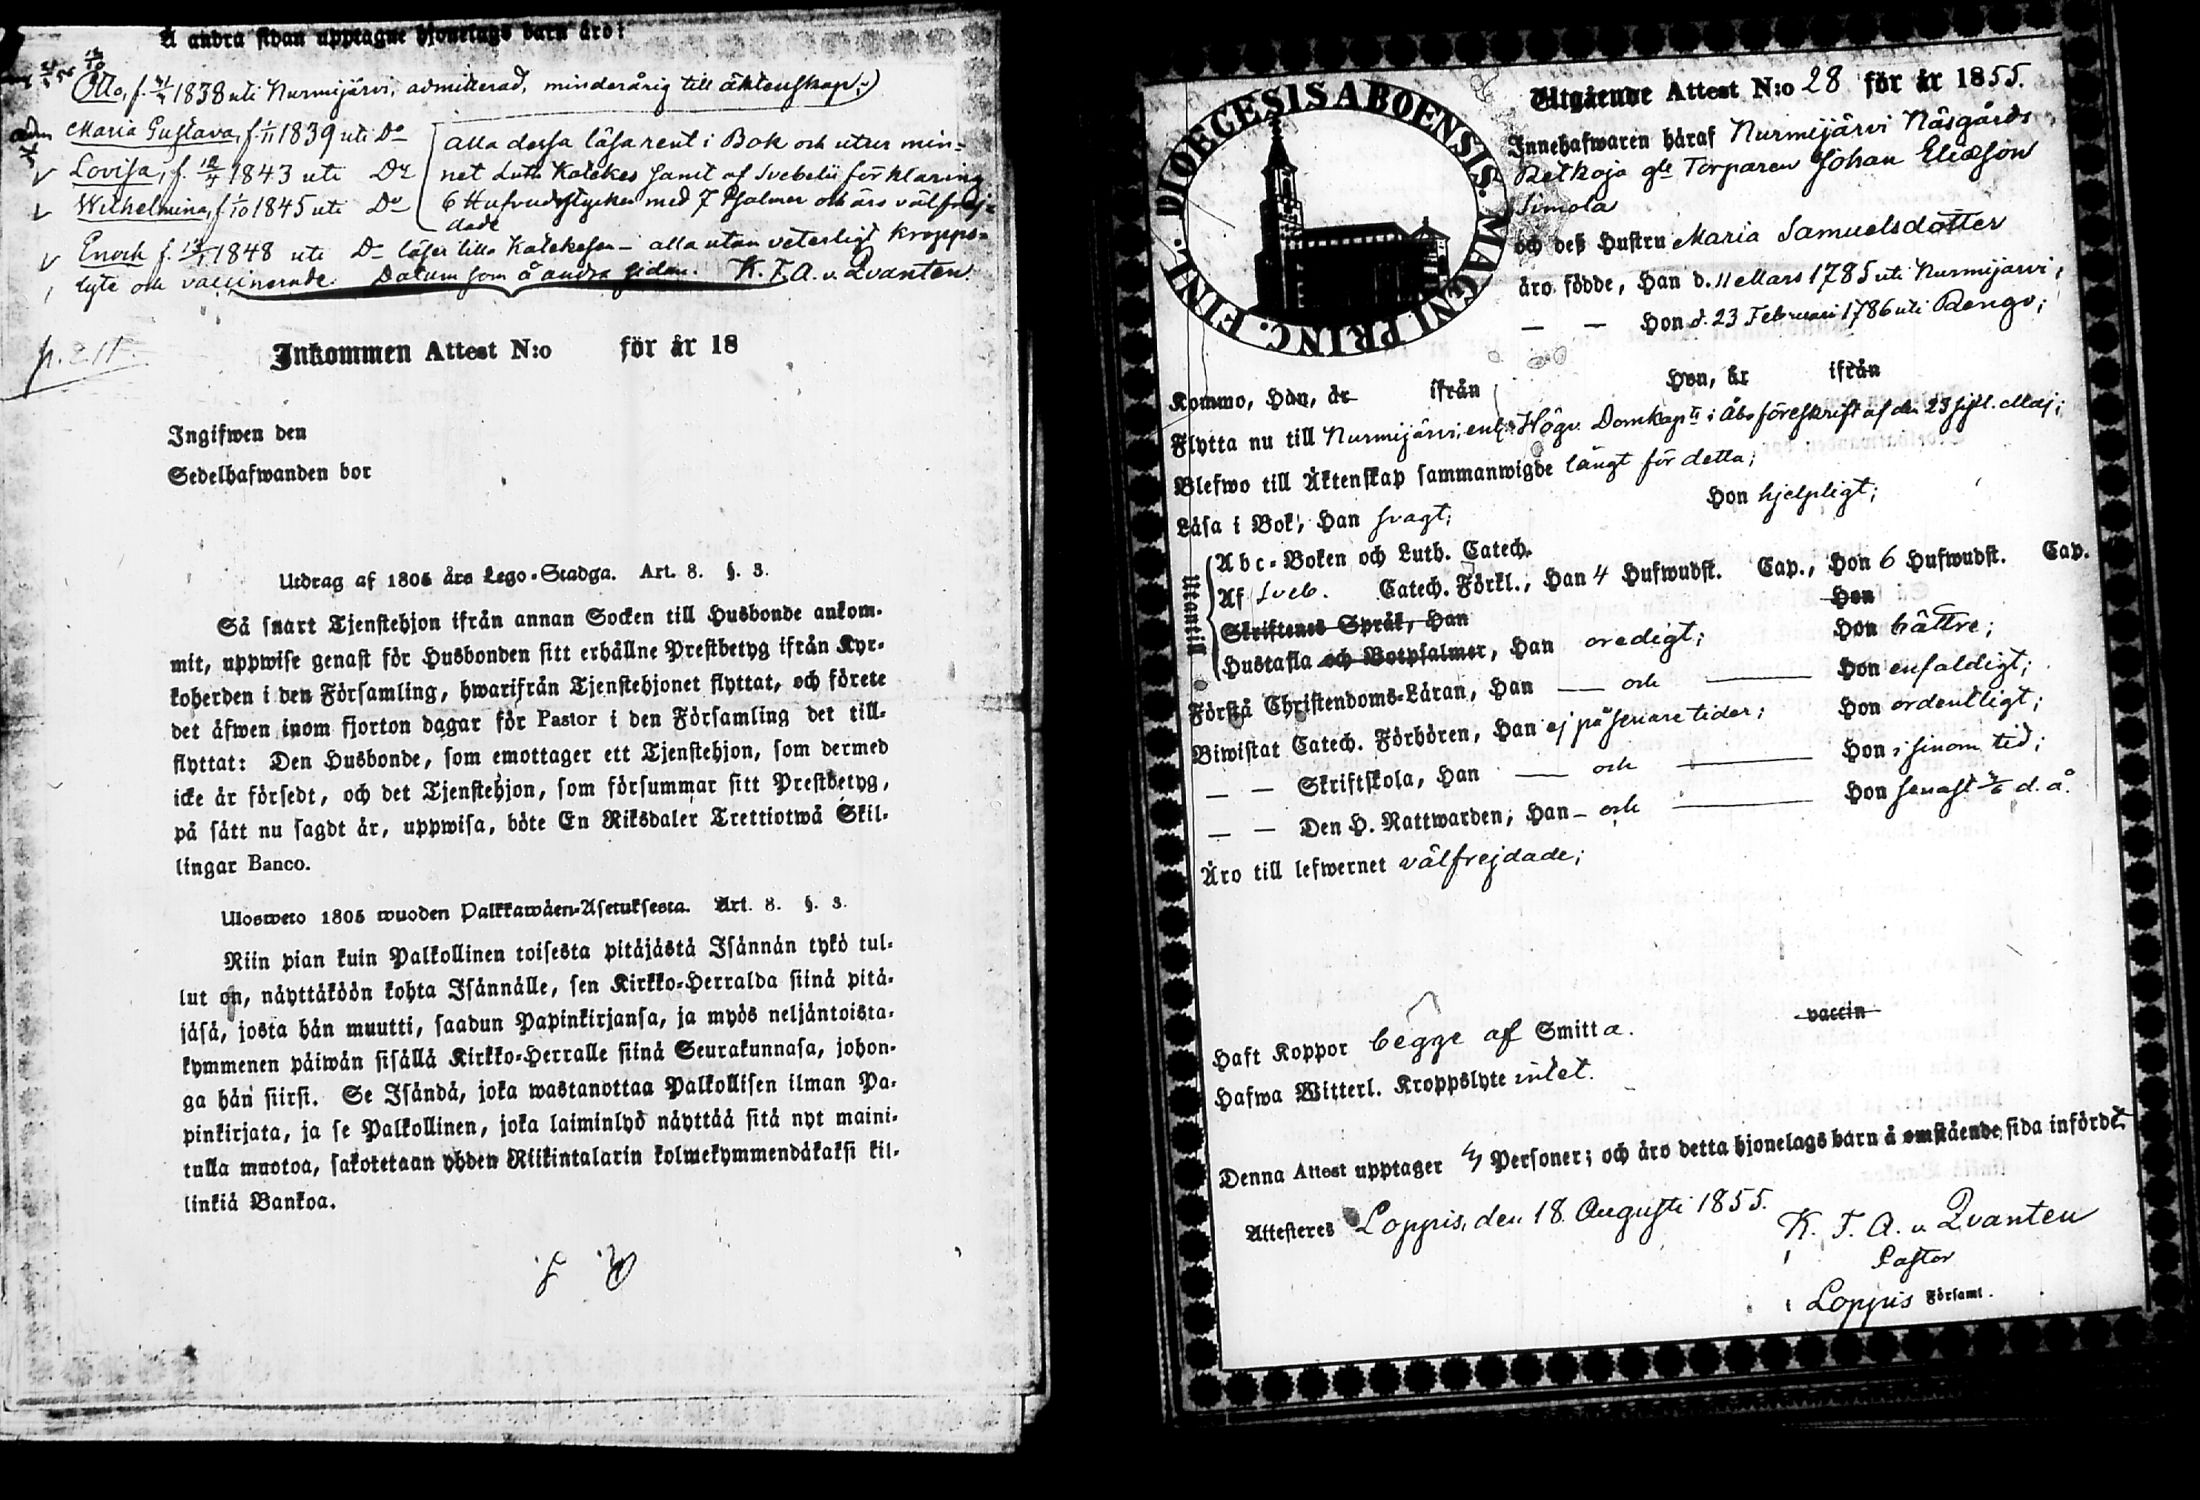 Å andra sidan upptagne hjonelags barn äro:
Otto, f. 1838 uti Nurmijärvi, admitterad, minderårig till äktenskap;)
Maria Gustava, f. 1839 uti Do
Lovisa, f. 1843 uti Do
Wilhelmina, f. 1/10 1845 uti Do
alla dessa läsa rent i Bok och utur min-
net Luth. Katekes samt af Svebelii förklaring
6 Hufvudstycken med 7 Psalmer och äro välfrej-
dade
Enoch f. 1848 uti Do läser lilla Katekesen – alla utan veterligt kropps-
lyte och vaccinerade. Datum som å andra sidan. K. F. A. v. Qvanten.
Inkommen Attest N:o för år 18
Ingifwen den
Sedelhafwanden bor
Utdrag af 1805 års Lego-Stadga. Art. 8. §. 3.
Så snart Tjenstehjon ifrån annan Socken till Husbonde ankom-
mit, uppwise genast för Husbonden sitt erhållne Prestbetyg ifrån Kyr-
koherden i den Församling, hwarifrån Tjenstehjonet flyttat, och förete
det äfwen inom fjorton dagar för Pastor i den Församling det till-
flyttat: Den Husbonde, som emottager ett Tjenstehjon, som dermed
icke är försedt, och det Tjenstehjon, som försummar sitt Prestbetyg,
på sätt nu sagdt är, uppwisa, böte En Riksdaler Trettiotwå Skil-
lingar Banco.
Ulosweto 1805 wuoden Palkkawäen-Asetuksesta. Art. 8. §. 3.
Niin pian kuin Palkollinen toisesta pitäjästä Isännän tykö tul-
lut on, näyttäköön kohta Isännälle, sen Kirkko-Herralda siinä pitä-
jäsä, josta hän muutti, saadun Papinkirjansa, ja myös neljäntoista-
kymmenen päiwän sisällä Kirkko-Herralle siinä Seurakunnasa, johon-
ga hän siirsi. Se Isändä, joka wastanottaa Palkollisen ilman Pa-
pinkirjata, ja se Palkollinen, joka laiminlyö näyttää sitä nyt maini-
tulla muotoa, sakotetaan yhden Riikintalarin kolmekymmendäkaksi kil-
linkiä Bankoa.
DIOECESIS ABOENSIS. MAGNI PRINC. FINL.
Utgående Attest N:o 28 för år 1855.
Innehafwaren häraf Nurmijärvi Näsgårds
Retkoja gle Torparen Johan Eliasson
Simola
och deß Hustru Maria Samuelsdotter
äro födde, Han d. 11 Mars 1785 uti Nurmijärvi,
— — Hon d. 23 Februari 1786 uti Rengo;
Kommo, Han, år ifrån Hon, år ifrån
Flytta nu till Nurmijärvi, enl. Högv. Domkap:ts i Åbo föreskrift af den 23 sistl. Maj;
Blefwo till Äktenskap sammanwigde längt för detta;
Läsa i Bok, Han svagt; Hon hjelpligt;
Utantill
Abc-Boken och Luth. Catech.
Af Sveb. Catech. Förkl., Han 4 Hufwudst. Cap., Hon 6 Hufwudst. Cap.
Skriftenes Språk, Han Hon
Hustafla och Botpsalmer, Han oredigt; Hon bättre;
Förstå Christendoms-Läran, Han — och — Hon enfaldigt;
Biwistat Catech. Förhören, Han ej på senare tider; Hon ordentligt;
— — Skriftskola, Han — och — Hon i sinom tid;
— — Den H. Nattwarden, Han – och — Hon senast d. å.
Äro till lefwernet välfrejdade;
Haft Koppor begge af Smitta. vaccin
Hafwa Witterl. Kroppslyte intet.
Denna Attest upptager 7 Personer; och äro detta hjonelags barn å omstående sida införde.
Attesteres Loppis, den 18 Augusti 1855.
K. F. A. v. Qvanten
Pastor
i Loppis Församl.